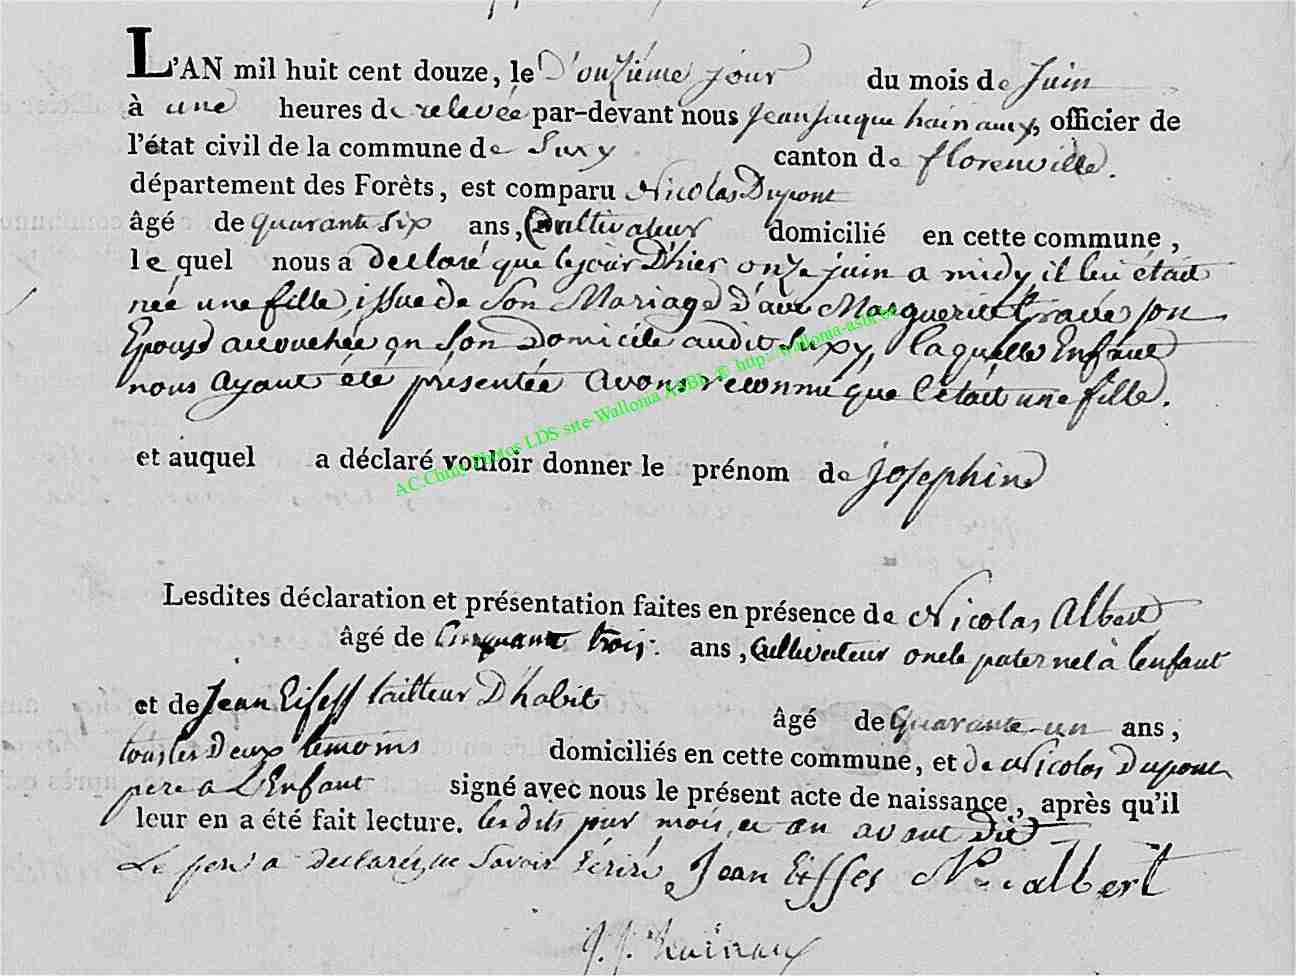 L'AN mil huit cent douze, le Douzième jour du mois de Juin
à une heures de relevée par-devant nous Jean Jacque hainaux, officier de
l'état civil de la commune de Suxy canton de florenville.
département des Forèts, est comparu Nicolas Dupont
âgé de quarante six ans, Cultivateur domicilié en cette commune,
le quel nous a declaré que le jour D'hier onze juin a midy il lui était
née une fille, issue de Son Mariage d'avec Marguerite son
Epouse accouchée en Son Domicile audit Suxy, laquelle Enfant
nous ayant été présentée avons reconnu que c'était une fille.
AC.Chiny Photos LDS site-Wallonia ASBL © http://wallonia-asbl.be
et auquel a déclaré vouloir donner le prénom de Josephine
Lesdites déclaration et présentation faites en présence de Nicolas Albert
âgé de Cinquante trois ans, Cultivateur oncle paternel à l'enfant
et de Jean Eifess tailleur D'habit âgé de Quarante-un ans,
tous les Deux temoins domiciliés en cette commune, et de Nicolas Dupont
pere a L'Enfant signé avec nous le présent acte de naissance, après qu'il
leur en a été fait lecture. les dits jour mois et an avant Dit
Le pere a declaré ne Savoir Ecrire Jean Eiffes N. albert
J. J. hainaux